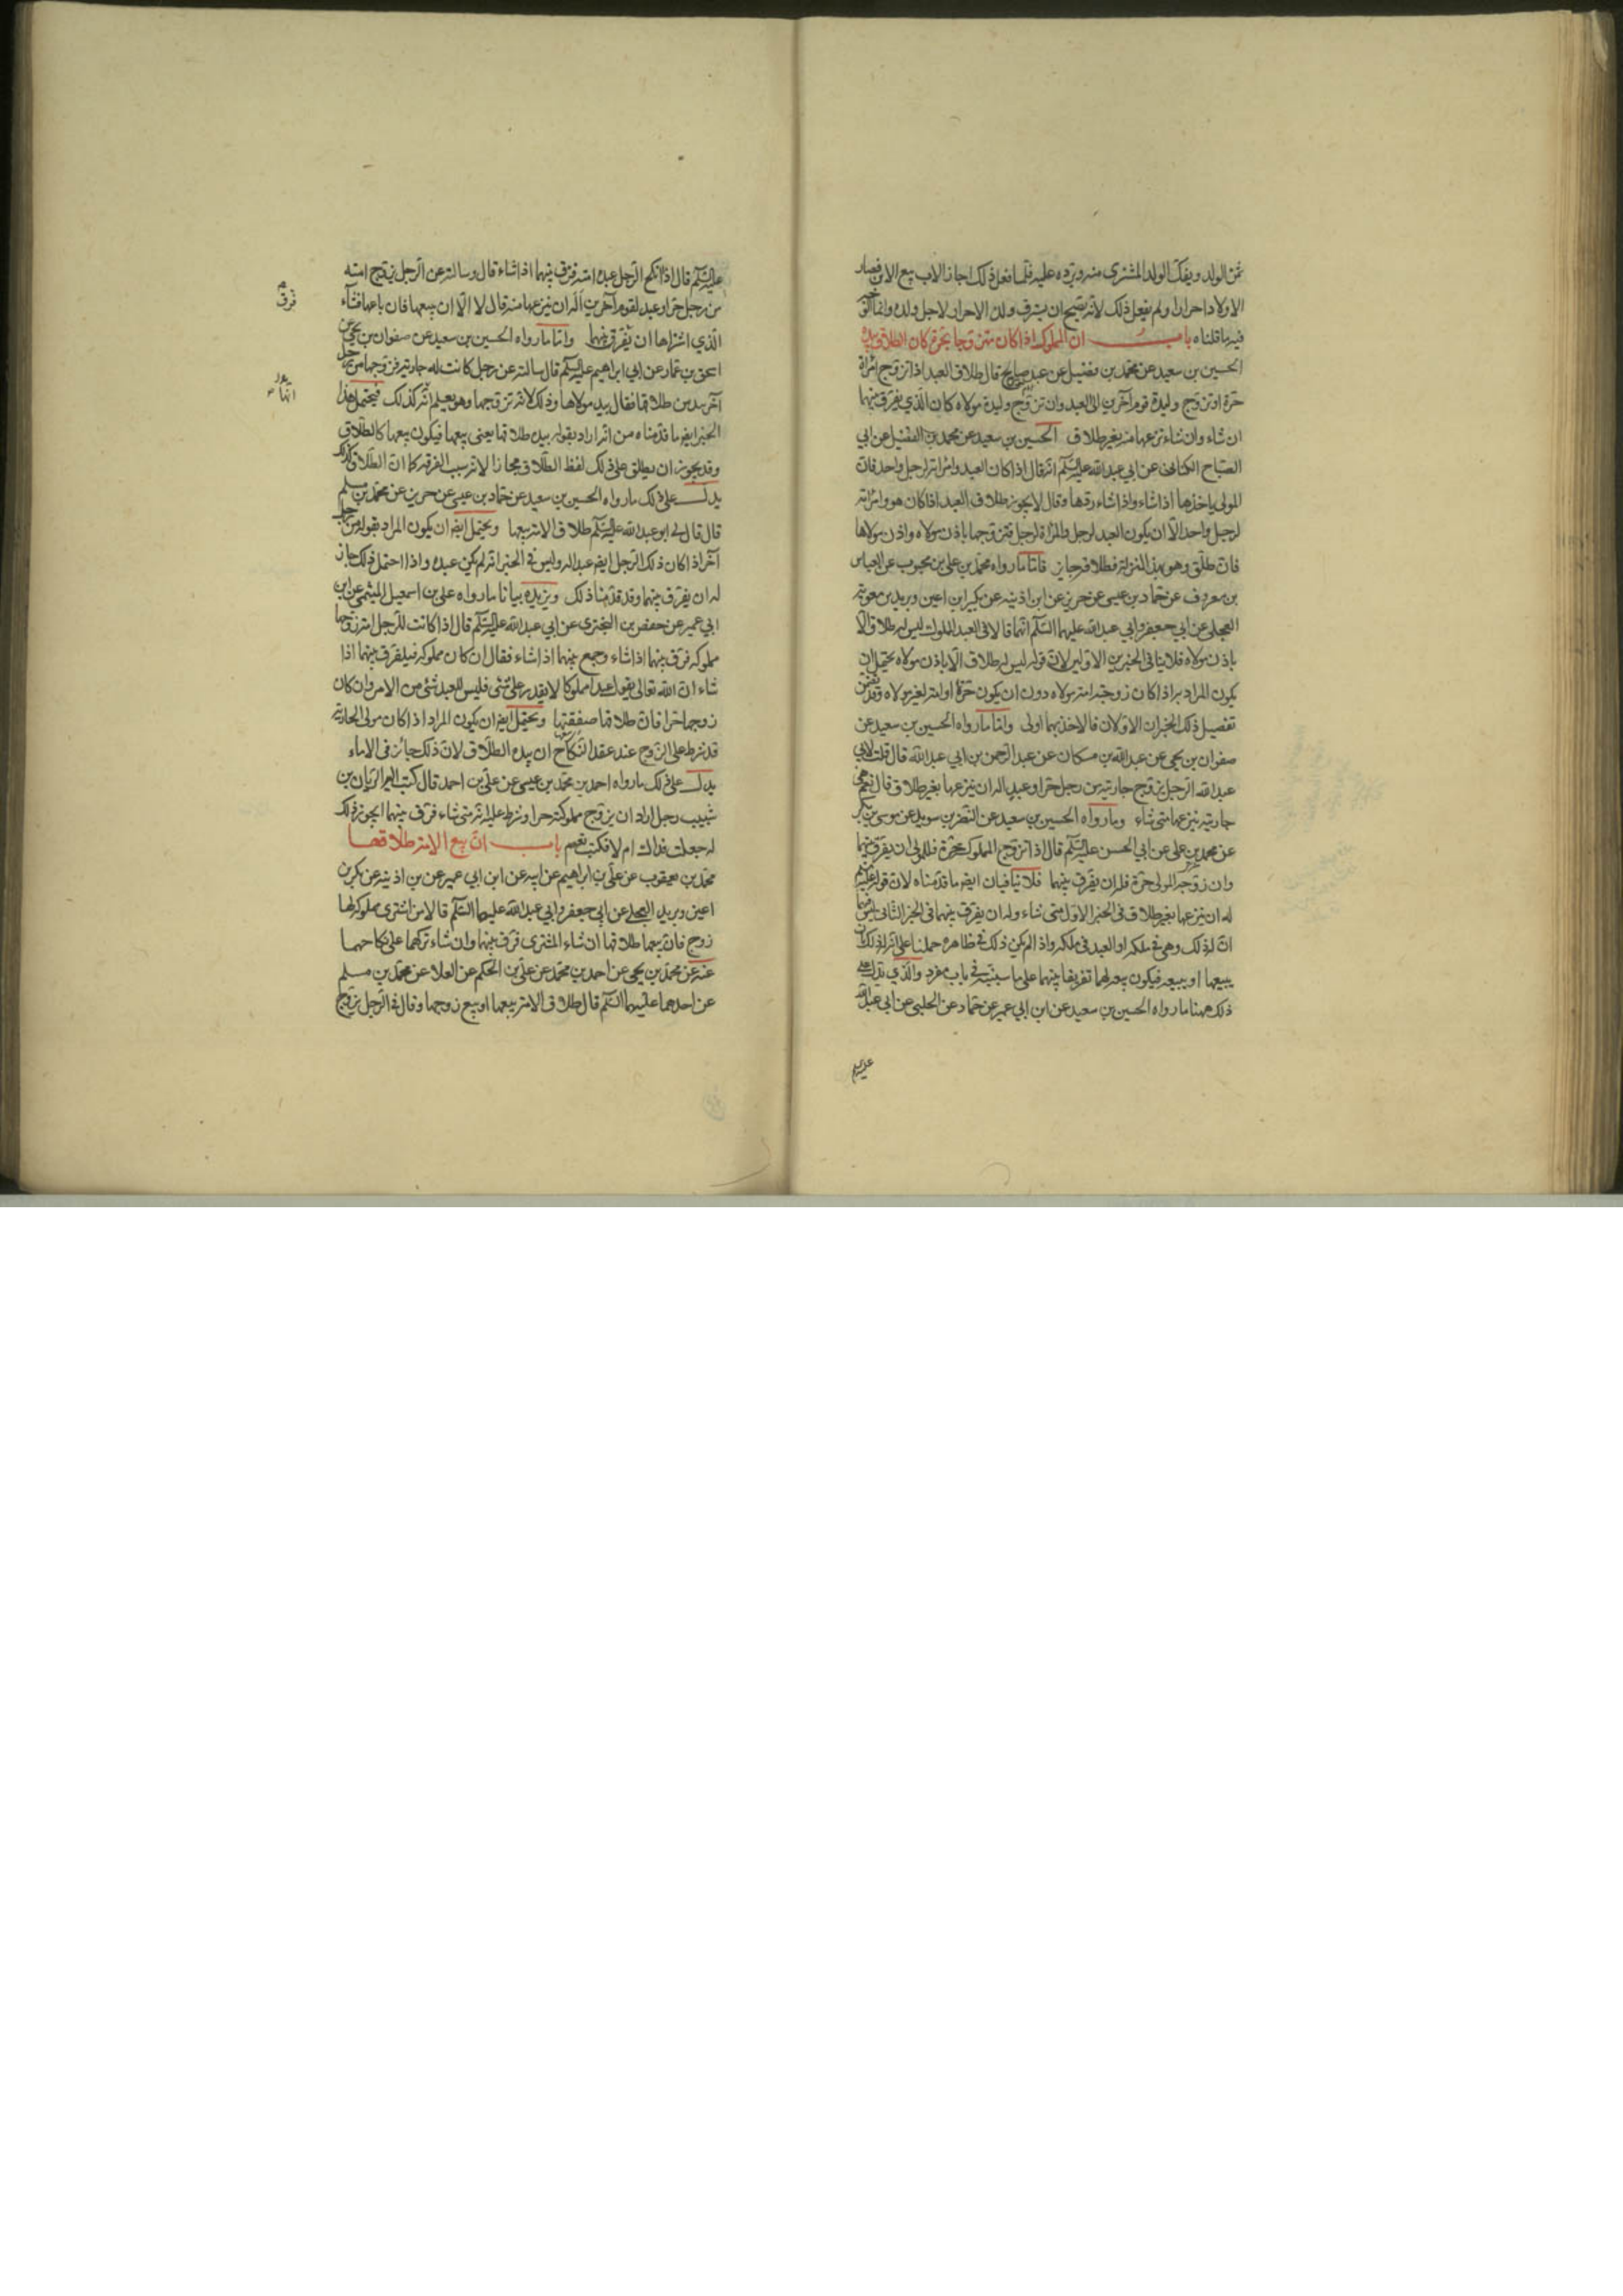 ثمن الولد ويفك الولد المشتري منه ويرده عليه فلما فعل ذلك اجاز الاب بيع الابن فصار
الاولاد احرارا ولم يفعل ذلك لانه يصح ان يسترق ولد الاحرار لاجل ولده وانما
فيه ما قلناه باب ان المملوك اذا كان متزوجا بحرة كان الطلاق بيده
الحسين بن سعيد عن محمد بن فضيل عن عبد صالح قال طلاق العبد اذا تزوج امراة
حرة او تزوج وليدة قوم آخرين الى العبد وان تزوج وليدة مولاه كان الذي يفرق بينهما
ان شاء وان شاء نزعها منه بغير طلاق الحسين بن سعيد عن محمد بن الفضيل عن ابي
الصباح الكناني عن ابي عبد الله عليه السلم انه قال اذا كان العبد وامراته لرجل واحد فان
المولى ياخذها اذا شاء واذا شاء ردها وقال لا يجوز طلاق العبد اذا كان هو وامراته
لرجل واحد الا ان يكون العبد لرجل والمراة لرجل فتزوجها باذن مولاه واذن مولاها
فان طلق وهو بهذا المنزلة فطلاقه جايز فاما ما رواه محمد بن علي بن محبوب عن العباس
بن معروف عن حماد بن عيسى عن حريز عن ابن اذينه عن بكير ابن اعين وبريد بن معوية
العجلي عن ابي جعفر وابي عبد الله عليهما السلم انهما قالا في العبد المملوك ليس له طلاق الا
باذن مولاه فلا ينافي الخبرين الاولين لان قوله ليس له طلاق الا باذن مولاه يحتمل ان
يكون المراد به اذا كان زوجته امة مولاه دون ان يكون حرة او امة لغير مولاه وقد تضمن
تفصيل ذلك الخبران الاولان فالاخذ بهما اولى واما ما رواه الحسين بن سعيد عن
صفوان بن يحيى عن عبد الله بن مسكان عن عبد الرحمن بن ابي عبد الله قال قلت لابي
عبد الله الرجل يزوج جاريته من رجل حر او عبد اله ان ينزعها بغير طلاق قال نعم هي
جاريته ينزعها متى شاء وما رواه الحسين بن سعيد عن النضر بن سويد عن موسى بن بكر
عن محمد بن علي عن ابي الحسن عليه السلم قال اذا تزوج المملوك حرة فللمولى ان يفرق بينهما
وان زوجه المولى حرة فله ان يفرق بينهما فلا ينافيان ايضا ما قدمناه لان قوله عليه السلم
له ان ينزعها بغير طلاق في الخبر الاول متى شاء وله ان يفرق بينهما في الخبر الثاني ليس فيهما
ان له ذلك وهي في ملكه او العبد في ملكه واذا لم يكن ذلك في ظاهره حملنا على انه له ذلك بان
يبيعها او يبيعه فيكون بيعه لهما تفريقا بينهما على ما سنبينه في باب مفرد والذي يدل على
ذلك ههنا ما رواه الحسين بن سعيد عن ابن ابي عمير عن حماد عن الحلبي عن ابي عبد الله
عليه السلم
عليه السلم قال اذا انكح الرجل عبده امته فرق بينهما اذا شاء قال وسالته عن الرجل يزوج امته
من رجل حر او عبد لقوم آخرين اله ان ينزعها منه قال لا الا ان يبيعها فان باعها فشاء
الذي اشتراها ان يفرق بينهما واما ما رواه الحسين بن سعيد عن صفوان بن يحيى عن
اسحق بن عمار عن ابي ابراهيم عليه السلم قال سالته عن رجل كانت له جارية فزوجها من رجل
آخر بيد من طلاقها فقال بيد مولاها وذلك لانه تزوجها وهو يعلم انها كذلك فيحتمل هذا
الخبر ايضا ما قدمناه من انه اراد بقوله بيده طلاقها يعني بيعها فيكون بيعها كالطلاق
وقد يجوز ان يطلق على ذلك لفظ الطلاق مجازا لانه سبب الفرقة كما ان الطلاق كذلك
يدل على ذلك ما رواه الحسين بن سعيد عن حماد بن عيسى عن حريز عن محمد بن مسلم
قال قال لي ابو عبد الله عليه السلم طلاق الامة بيعها ويحتمل ايضا ان يكون المراد بقوله من رجل
آخر اذا كان ذلك الرجل ايضا عبدا له وليس في الخبر انه لم يكن عبده واذا احتمل ذلك جاز
له ان يفرق بينهما وقد قدمنا ذلك ويزيده بيانا ما رواه علي بن اسمعيل الميثمي عن ابن
ابي عمير عن حفص بن البختري عن ابي عبد الله عليه السلم قال اذا كانت للرجل امة زوجها
مملوكه فرق بينهما اذا شاء وجمع بينهما اذا شاء فقال ان كان مملوكه فيلفرق بينهما اذا
شاء ان الله تعالى يقول عبدا مملوكا لا يقدر على شئ فليس للعبد شئ من الامر وان كان
زوجها حرا فان طلاقها صفقتها ويحتمل ايضا ان يكون المراد اذا كان مولى الجارية
قد شرط على الزوج عند عقد النكاح ان بيده الطلاق لان ذلك جائز في الاماء
يدل على ذلك ما رواه احمد بن محمد بن عيسى عن علي بن احمد قال كتب اليه الريان بن
شبيب رجل اراد ان يزوج مملوكته حرا وشرط عليه انه متى شاء فرق بينهما ايجوز ذلك
له جعلت فداك ام لا فكتب نعم باب ان بيع الامة طلاقها
محمد بن يعقوب عن علي بن ابراهيم عن ابيه عن ابن ابي عمير عن بن اذينه عن بكر بن
اعين وبريد العجلي عن ابي جعفر وابي عبد الله عليهما السلم قالا من اشترى مملوكة لها
زوج فان بيعها طلاقها ان شاء المشتري فرق بينهما وان شاء تركهما على نكاحهما
عنه عن محمد بن يحيى عن احمد بن محمد عن علي بن الحكم عن العلا عن محمد بن مسلم
عن احدهما عليهما السلم قال طلاق الامة بيعها او بيع زوجها وقال في الرجل يزوج
فرق
انها